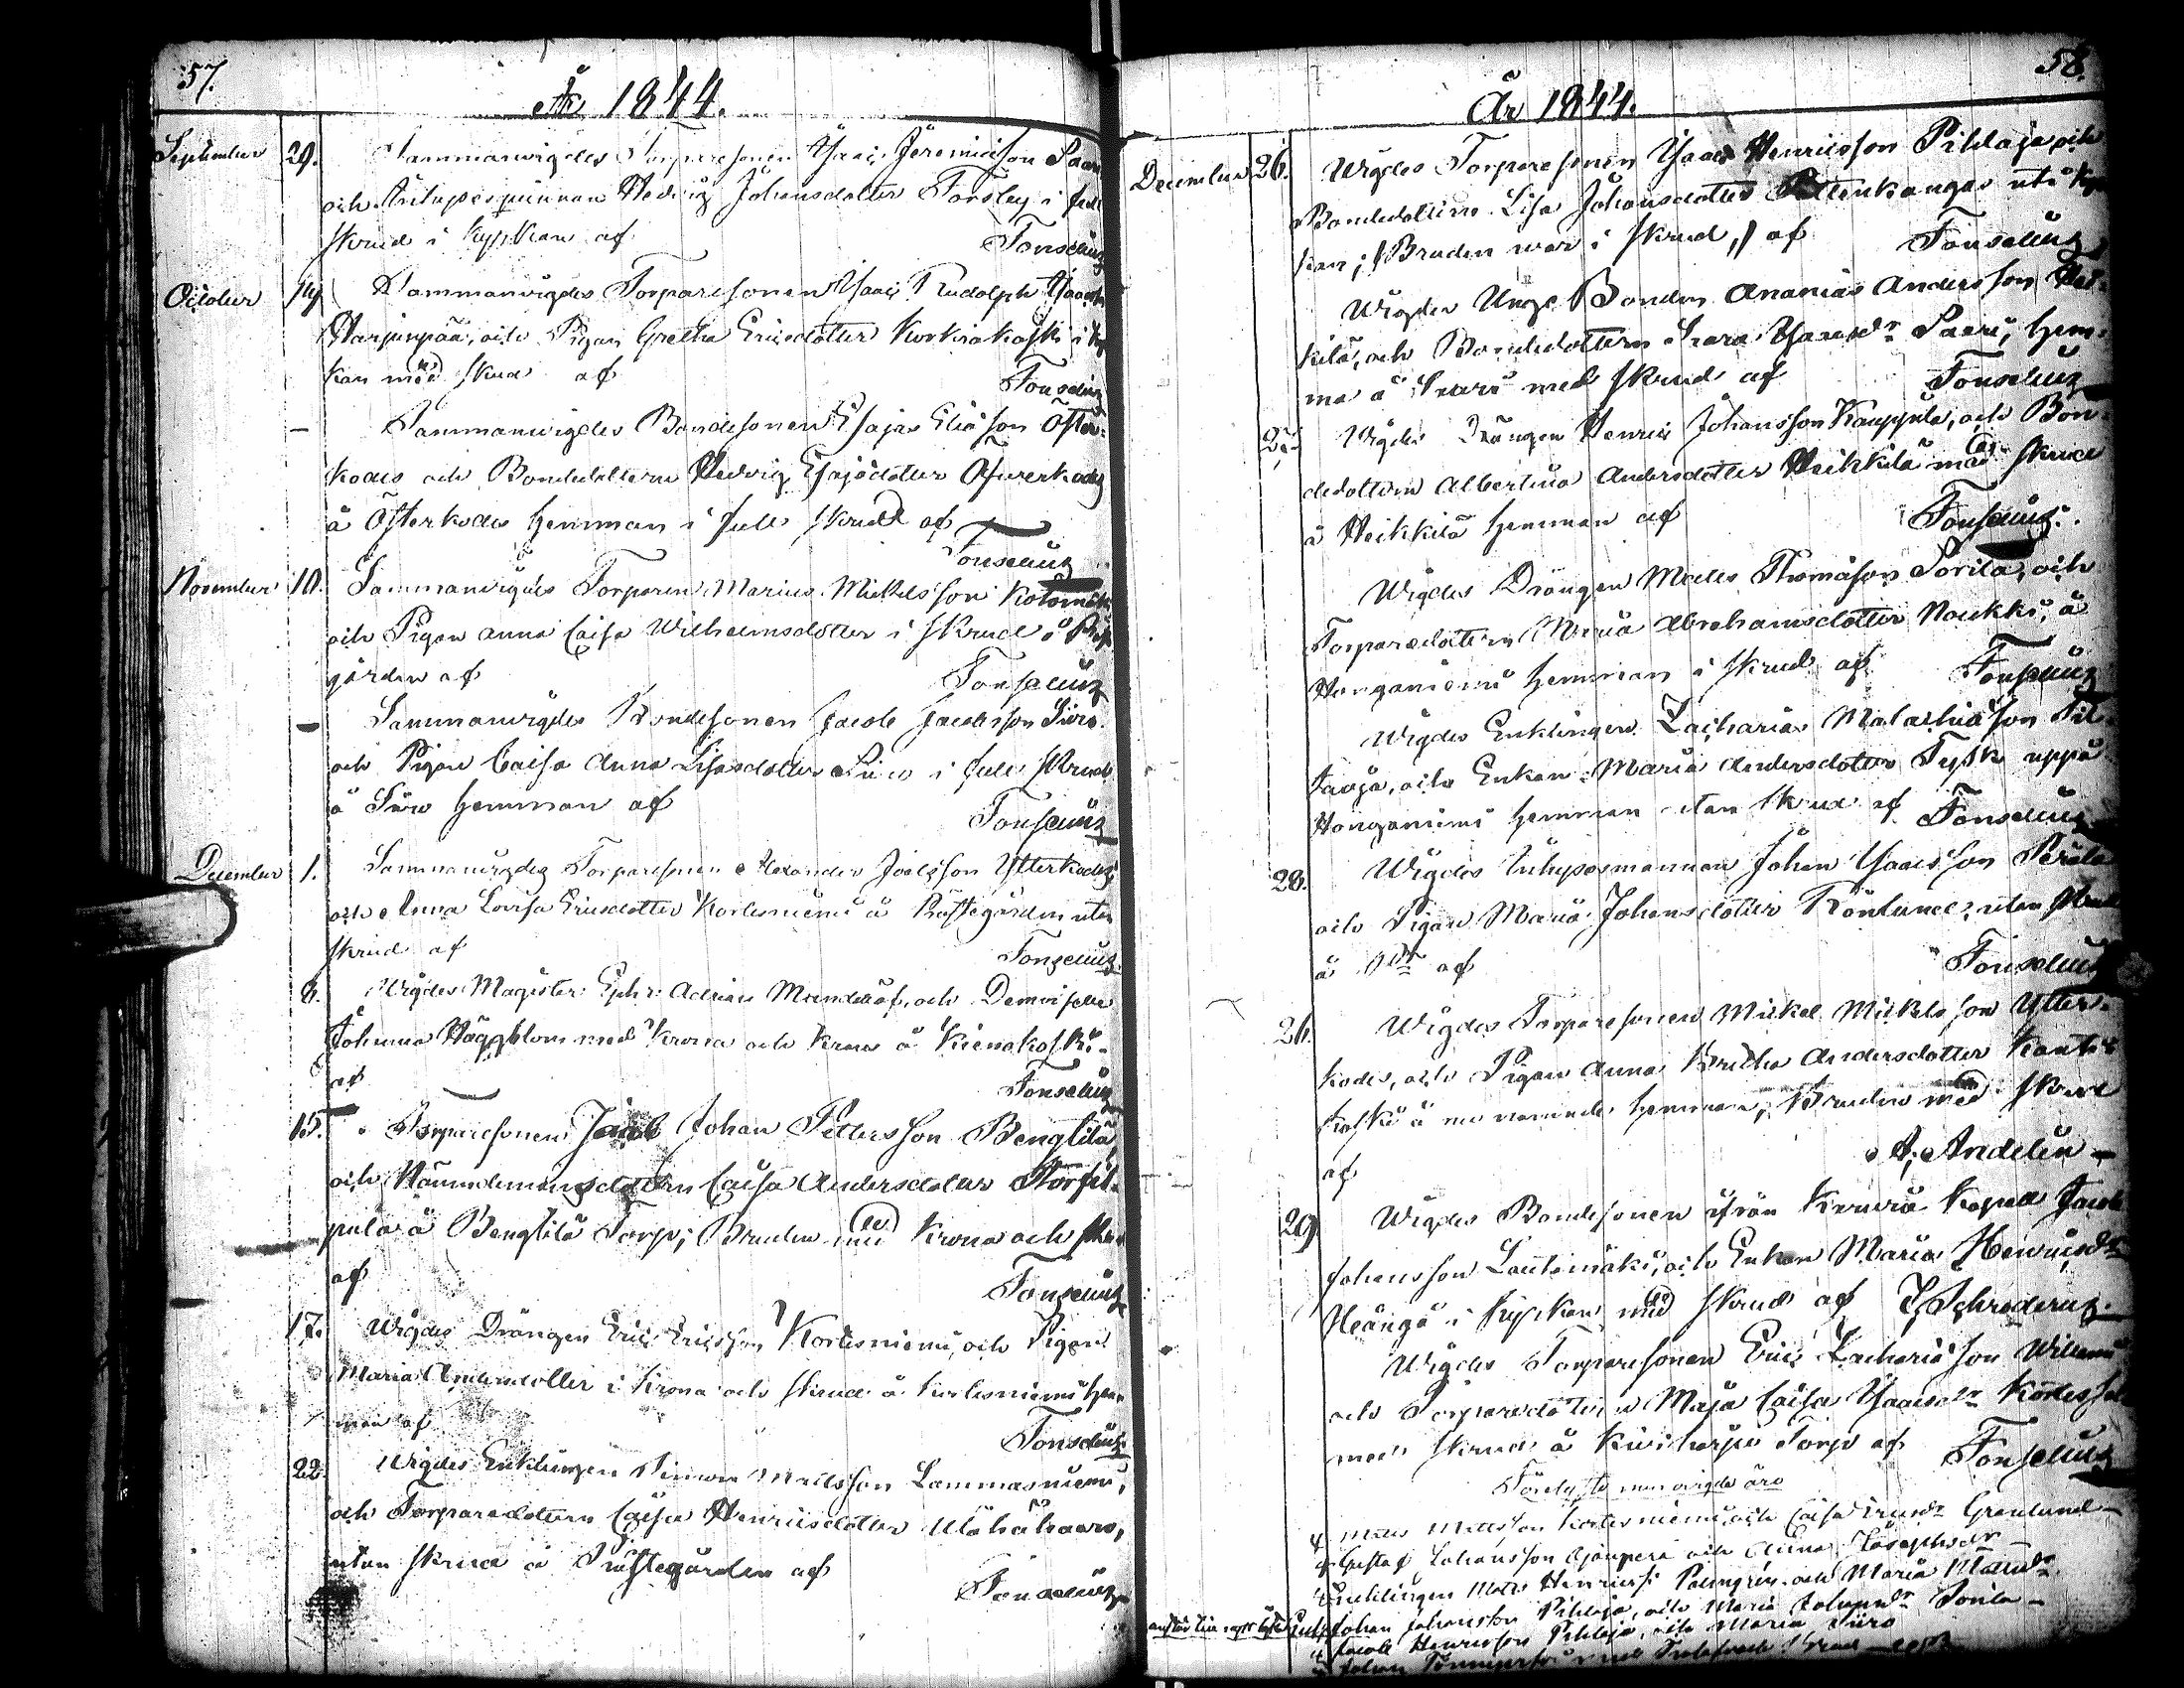 57.
År 1844.
September 29. Sammanvigdes Torparesonen Isaac Jeremiæson Saari
och Inhysespiinnan Hedvig Johansdotter Forsby i full
skrud i kyrkan af Fonselius
October 14 Sammanvigdes Torparesonen Isaac Rudolph Isaacss.
Harjunpää, och Pigan Gretha Ericsdotter Korkiakoski i kyr
kan med skrud af Fonselius
— Sammanvigdes Bondesonen Esajas Eliæson Öfter-
kodes och Bondedottern Hedvig Esajædotter Öfverkodes
å Öfterkodes hemman i full skrud af
Fonselius
November 10. Sammanvigdes Torparen Marius Mickelsson Kotamäki
och Pigan Anna Caisa Wilhelmsdotter i skrud å Prest
gården af Fonselius
— Sammanvigdes Bondesonen Jacob Jacobsson Siiro
och Pigan Caisa Anna Lisasdotter Siiro i full skrud
å Siiro hemman af Fonselius
December 1. Sammanvigdes Torparesonen Alexander Joelsson Ytterkodes
och Anna Lovisa Ericsdotter Kortesniemi å Prestegården utan
skrud af Fonselius
8. Vigdes Magister Ephr: Adrian Mandellöf, och Demoiselle
Johanna Häggblom med krona och krans å Kienakoski
af Fonselius
15. Torparesonen Johan Pettersson Bengtilä
och Nämndemansdottern Caisa Andersdotter Storfil-
pula å Bengtilä Torp; Bruden med krona och skrud
af Fonselius
17. Wigdes Drängen Eric Ericsson Kortesniemi, och Pigan
Maria Andersdotter i krona och skrud å Kortesniemi hem-
man af Fonselius
22. Wigdes Enklingen Simon Mattsson Lammasniemi,
och Torparedottern Caisa Henricsdotter Wähähaaro,
utan skrud å Prestegården af
Fonselius
58.
År 1844.
December 26. Wigdes Torparesonen Isaac Henricsson Pihlaja och
Bondedottern Lisa Johansdotter Pettenkangas uti kyr
kan; (Bruden war i skrud,) af Fonselius
Wigdes Unge Bonden Ananias Andersson Hei-
kilä, och Bondedottern Sara Isaacsdr Saari, hem-
ma å Saari med skrud af Fonselius
27. Wigdes Drängen Henric Johansson Kauppila, och Bon-
dedottern Albertina Andersdotter Heikkilä med skrud
å Heikkilä hemman af Fonselius.
Wigdes Drängen Matts Thomasson Sorila, och
Torparedottern Maria Abrahamsdotter Naukki, å
Honganiemi hemman i skrud af Fonselius
Wigdes Enklingen Zacharias Malachiæson Pil-
taoja, och Enkan Maria Andersdotter Tysk uppå
Honganiemi hemman utan skrud af Fonselius
28. Wigdes Inhysesmannen Johan Isaacsson Perälä
och Pigan Maria Johansdotter Rönlund, utan skrud
å af Fonselius
26. Wigdes Torparesonen Mickel Mickelsson Ytter-
kodes, och Pigan Anna Gretha Andersdotter Kanta
koski å nu nämnde hemman, Bruden med skrud
af A. Andelin —
29. Wigdes Bondesonen ifrån Kauvia Kapell Jacob
Johansson Lautamäki, och Enkan Maria Henricsdr
Heånga i kyrkan med skrud af J. Schroderus.
Wigdes Torparesonen Eric Zachariæson Willamo
och Torparedottern Maja Caisa Isaacsdr Kodes
med skrud å Kiviharju Torp af Fonselius
Förelyste men ovigde äro
Matts Mattsson Kortesniemi, och Caisa Ericsdr Granlund —
Gustaf Johansson Ajanperä och Anna Josephsdr —
Enklingen Matts Henricss: Palmgren och Maria Mattsdr
Johan Johansson Pihlaja, och Maria Johansdr Sorila —
Jacob Henricsson Pihlaja, och Maria Siiro